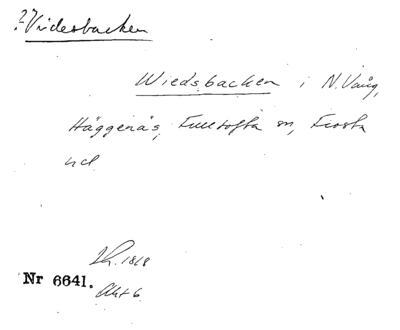 ? Videsbacken
Wiedsbacken i N. Vång,
Häggenäs, Fulltofta sn, Frosta
hd
Lh. 1868
Nr 6641.
Akt 6